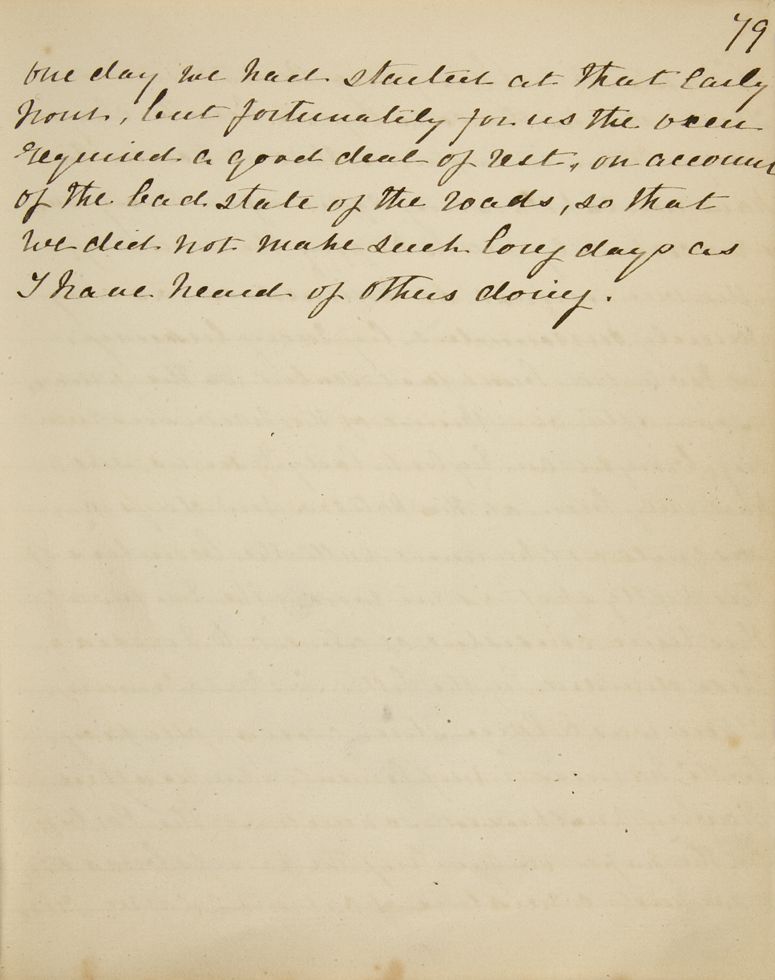 79
one day we had started at that early
hour, but fortunately for us the oxen
required a good deal of rest, on account
of the bad state of the roads, so that
we did not make such long days as
I have heard of others doing.